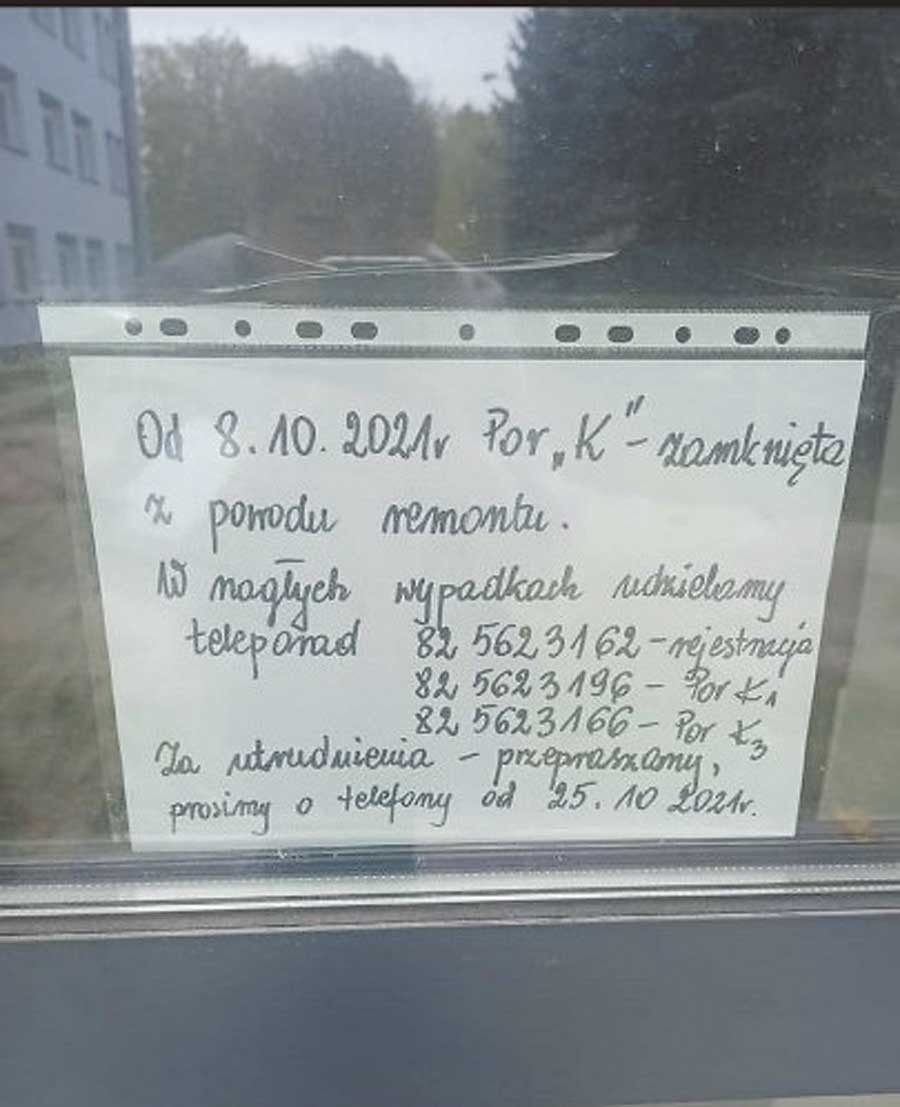 Od 8.10.2021r Por „K" - zamknięta
z powodu remontu.
W nagłych wypadkach udzielamy
teleporad 82 5623162 - rejestracja
82 5623196 - Por K1
82 5623166 - Por K3
Za utrudnienia - przepraszamy,
prosimy o telefony od 25.10 2021r.